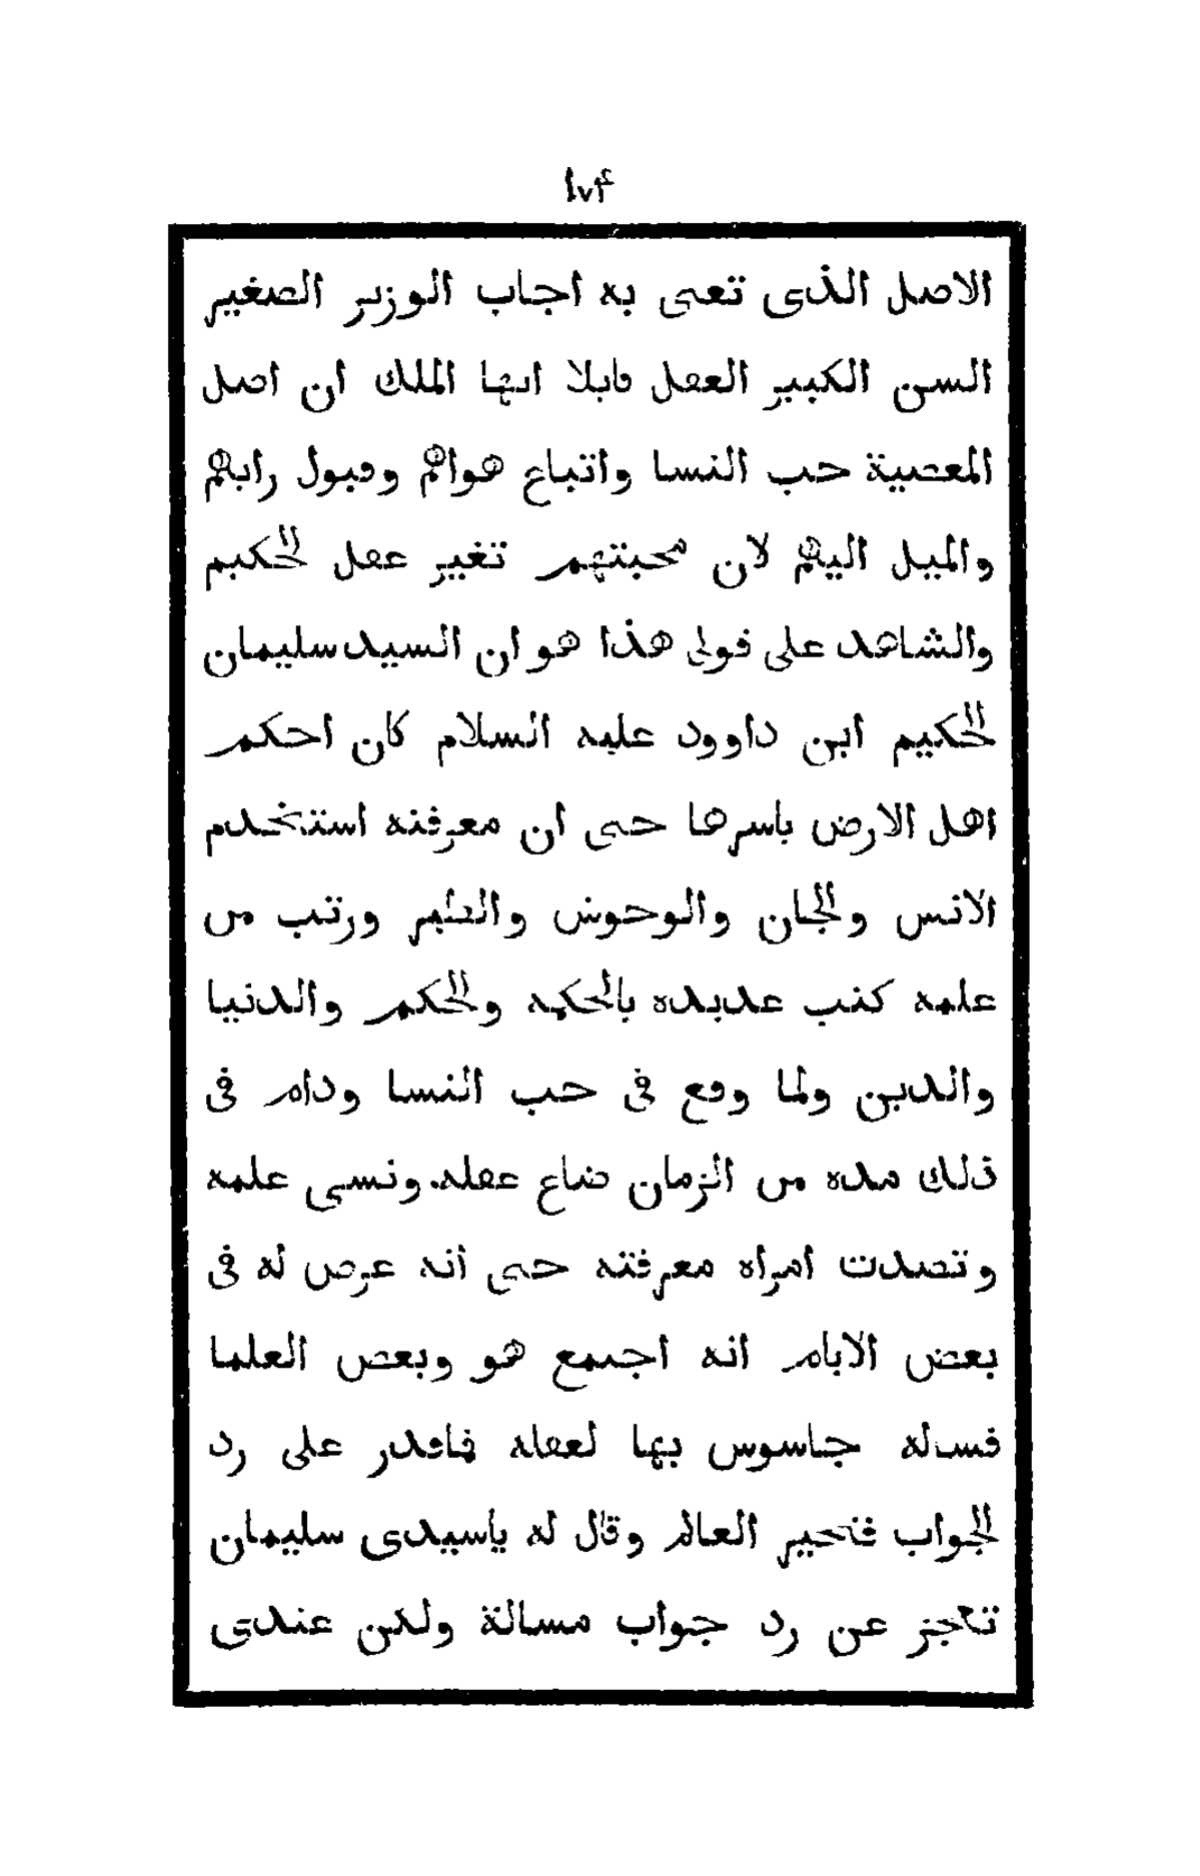 ١٧۴
الاصل الذى تعنى به اجاب الوزير الصغير
السن الكبير العقل قايلا ايها الملك ان اصل
المعصية حب النسا واتباع هواهم وقبول رايهم
والميل اليهم لان محبتهم تغير عقل الحكيم
والشاهد على قولى هذا هو ان السيد سليمان
الحكيم ابن داوود عليه السلام كان احكم
اهل الارض باسرها حتى ان معرفته استخدم
الانس والجان والوحوش والطير ورتب من
علمه كتب عديده بالحكمه والحكم والدنيا
والدين ولما وقع فى حب النسا ودام فى
ذلك مده من الزمان ضاع عقله ونسى علمه
وتصدت امراه معرفته حتى انه عرض له فى
بعض الايام انه اجتمع هو وبعض العلما
فساله جاسوس بها لعقله فاقدر على رد
الجواب فتحير العالم وقال له ياسيدى سليمان
تعجز عن رد جواب مسالة ولكن عندى